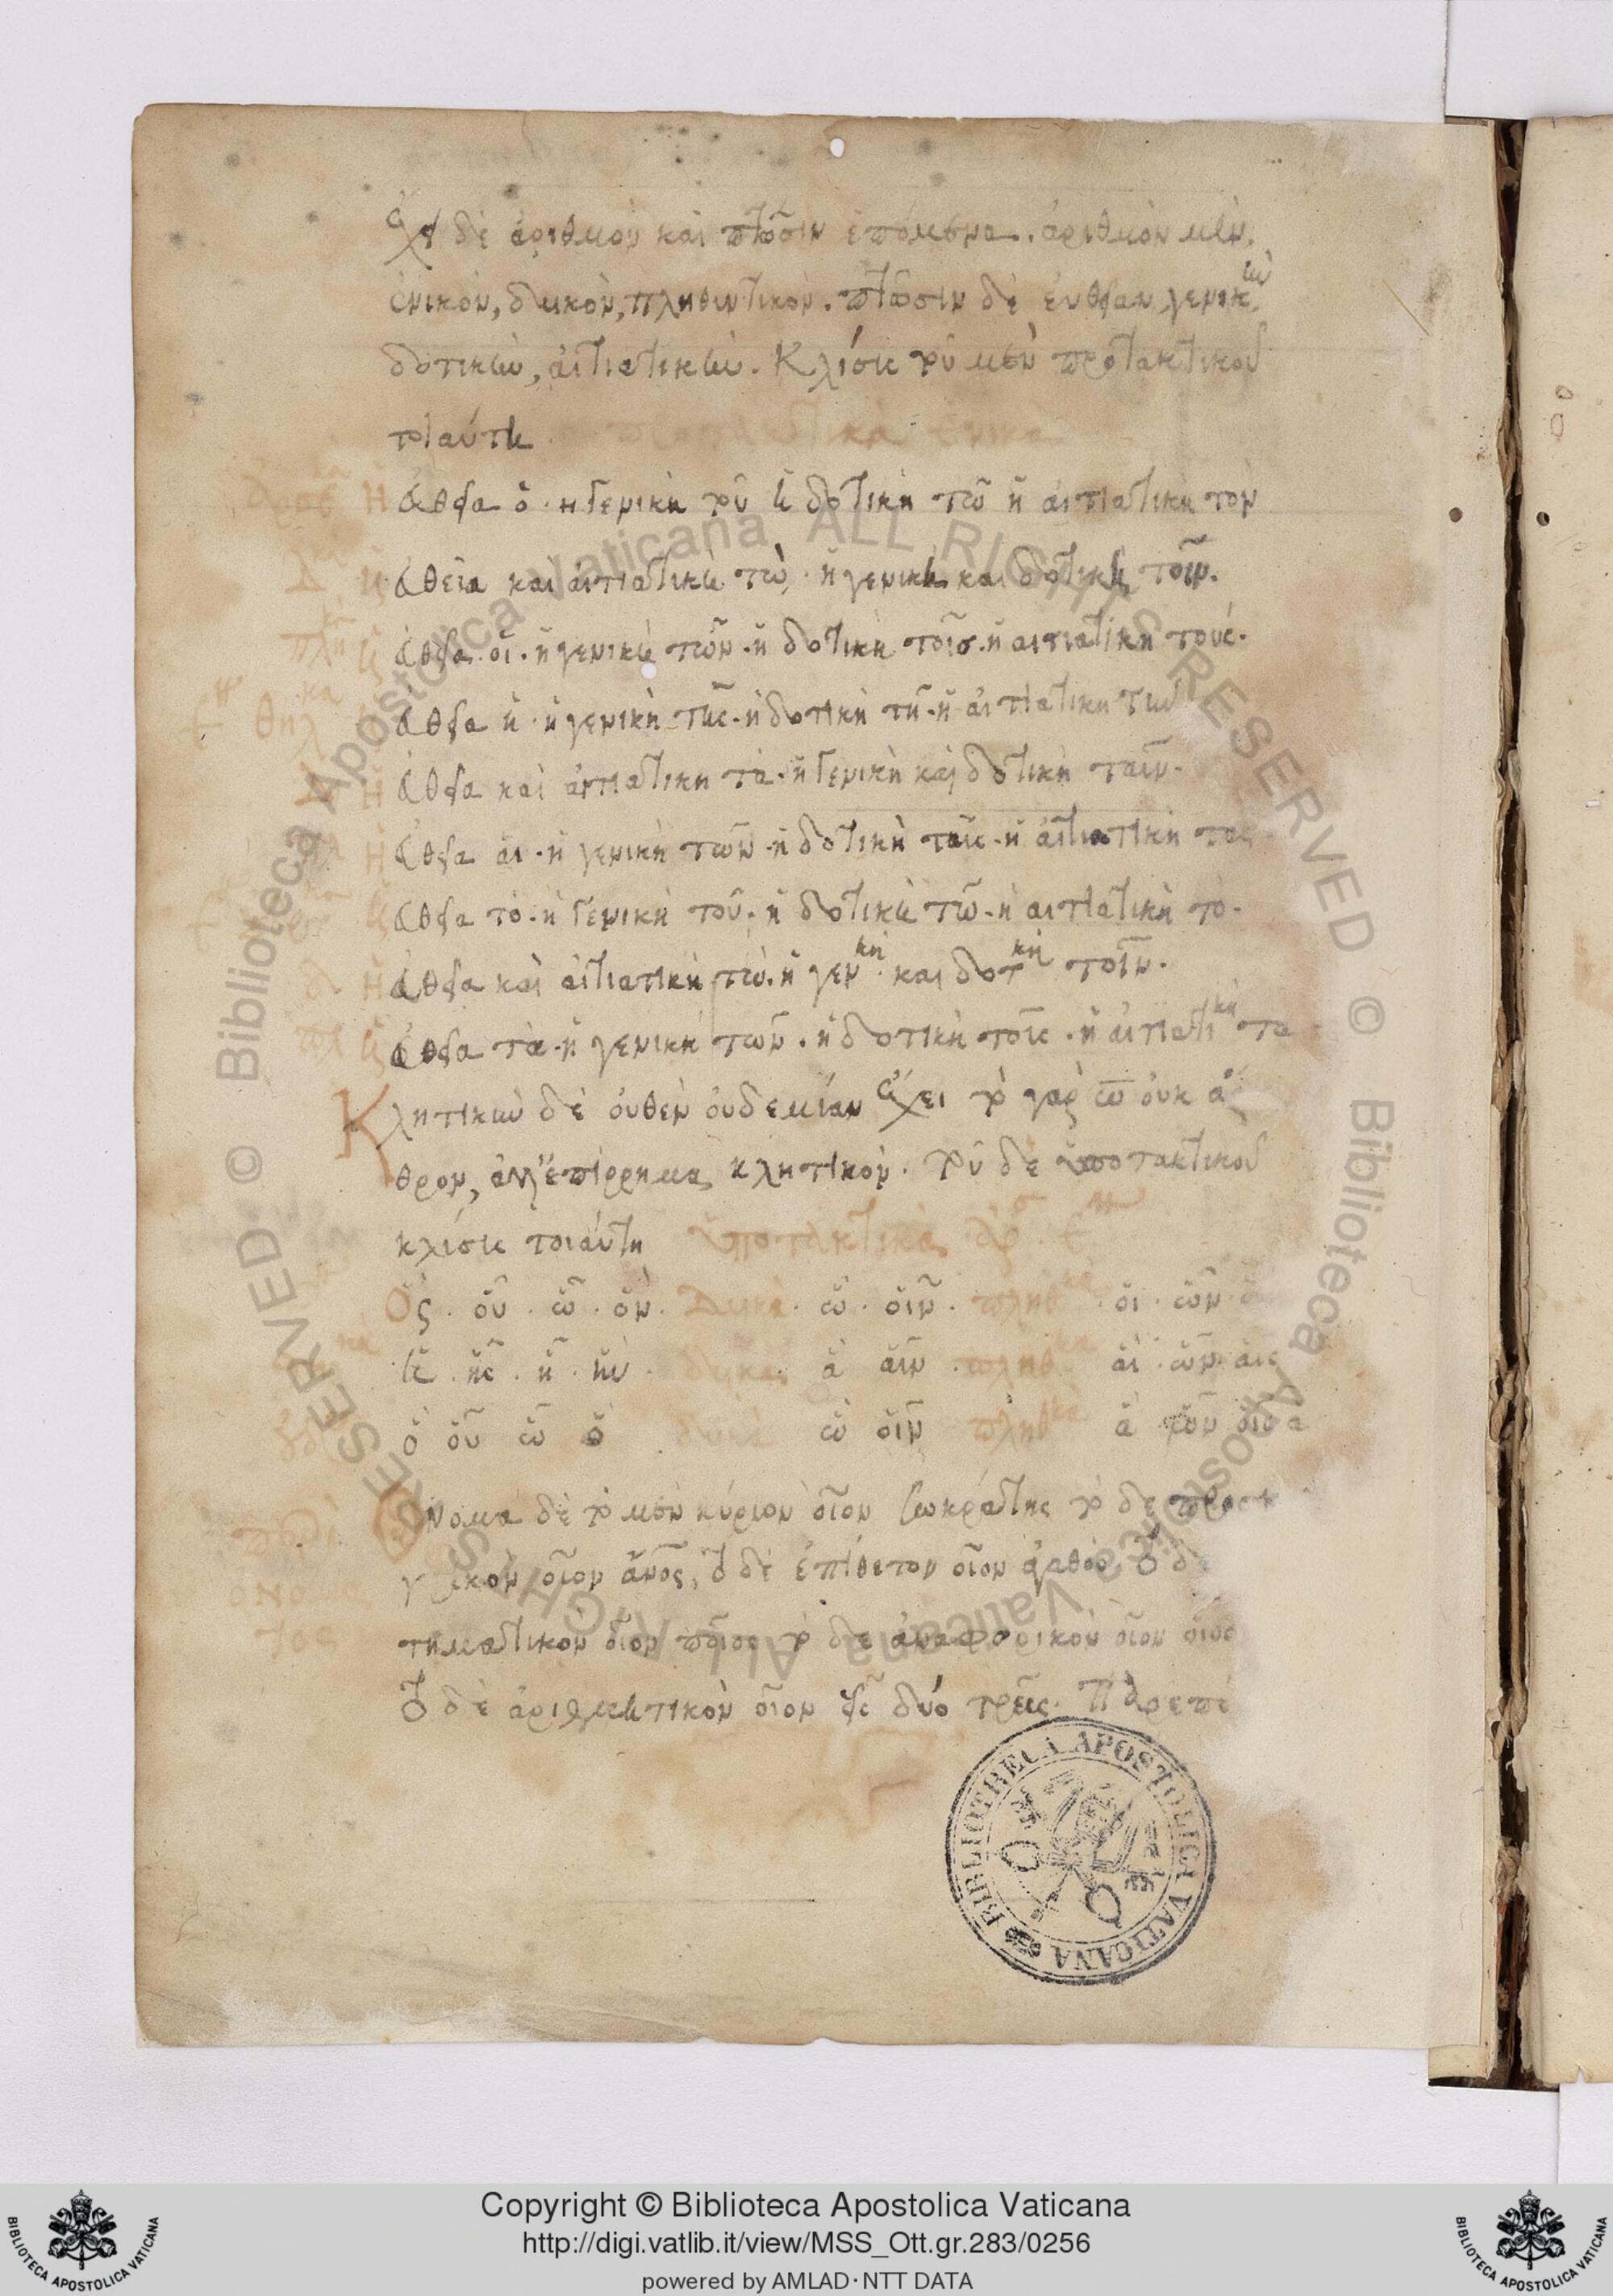 ἔχει δὲ ἀριθμὸν καὶ πτῶσιν ἑπόμενα. ἀριθμὸν μὲν,
ἑνικὸν, δυικὸν, πληθυντικὸν. πτῶσιν δὲ εὐθεῖαν γενικὴν
δοτικὴν, αἰτιατικὴν. Κλίσις τοῦ μὲν προτακτικοῦ
τοιαύτη προτακτικὰ ἑνικὰ
Ἡ εὐθεῖα ὁ · ἡ γενικὴ τοῦ ἡ δοτικὴ τῶ ἡ αἰτιατικὴ τὸν
Δ ἡ εὐθεῖα καὶ αἰτιατικὴ τὼ · ἡ γενικὴ καὶ δοτικὴ τοῖν.
πλη ἡ εὐθεῖα οἱ · ἡ γενικὴ τῶν · ἡ δοτικὴ τοῖσ · ἡ αἰτιατικὴ τούς.
θηλ εὐθεῖα ἡ · ἡ γενικὴ τῆς · ἡ δοτικὴ τῆ · ἡ αἰτιατικὴ τὴν
ἡ εὐθεῖα καὶ αἰτιατικὴ τὰ · ἡ γενικὴ καὶ δοτικὴ ταῖν.
ἡ εὐθεῖα αἱ · ἡ γενικὴ τῶν · ἡ δοτικὴ ταῖς · ἡ αἰτιατικὴ τας
ἡ εὐθεῖα τὸ · ἡ γενικὴ τοῦ · ἡ δοτικὴ τῶ · ἡ αἰτιατικὴ τὸ ·
δ ἡ εὐθεῖα καὶ αἰτιατικὴ τὼ · ἡ γενκὴ καὶ δοτκὴ τοῖν.
πλ ἡ εὐθεῖα τὰ · ἡ γενικὴ τῶν · ἡ δοτικὴ τοῖς · ἡ αἰτιατικὴ τα
Κλητικὴν δὲ οὐθὲν οὐδεμίαν ἔχει τὸ γὰρ ω οὐκ ἄρ
θρον, ἀλλ' ἐπίρρημα κλητικόν. τοῦ δὲ ὑποτακτικοῦ
κλίσις τοιαύτη ὑποτακτικὰ
Ὅς · οὗ · ᾧ · ὅν · Δυικὰ · ὣ · οἷν · πληθ · οἳ · ὧν
ἣ · ἧς · ἧ · ἣν · δυικὰ · ἃ αἷν · πληθ αἳ · ὧν αἷς
ὃ οὗ ᾧ ὃ δυικὰ ὣ οἷν πληθ ἃ ὧν οἷς ἃ
περὶ Ὄνομα δὲ τὸ μὲν κύριον οἷον Σωκράτης τὸ δὲ προση
ὀνό γορικὸν οἷον ἄνος, τὸ δὲ ἐπίθετον οἷον ἀγαθός τὸ δ
τος τηματικὸν οἷον ποῖος τὸ δὲ ἀναφορικὸν οἷον οἷος
τὸ δὲ ἀριθμητικὸν οἷον εἷς δύο τρεῖς. Παρεπ
BIBLIOTHECA APOSTOLICA VATICANA
© Biblioteca Apostolica Vaticana ALL RIGHTS RESERVED
© Biblioteca Apostolica Vaticana ALL RIGHTS RESERVED
Copyright © Biblioteca Apostolica Vaticana
http://digi.vatlib.it/view/MSS_Ott.gr.283/0256
powered by AMLAD·NTT DATA
BIBLIOTECA APOSTOLICA VATICANA
BIBLIOTECA APOSTOLICA VATICANA